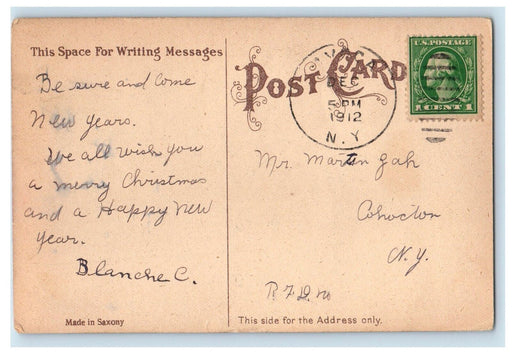 This Space For Writing Messages
POST CARD
DEC
5 PM
1912
N.Y.
U.S. POSTAGE
1 CENT 1
Be sure and Come
New Years.
We all wish you
a merry Christmas
and a Happy New
Year.
Blanche C.
Mr. Martin
Cohocton
N.Y.
R.F.D.
Made in Saxony
This side for the Address only.